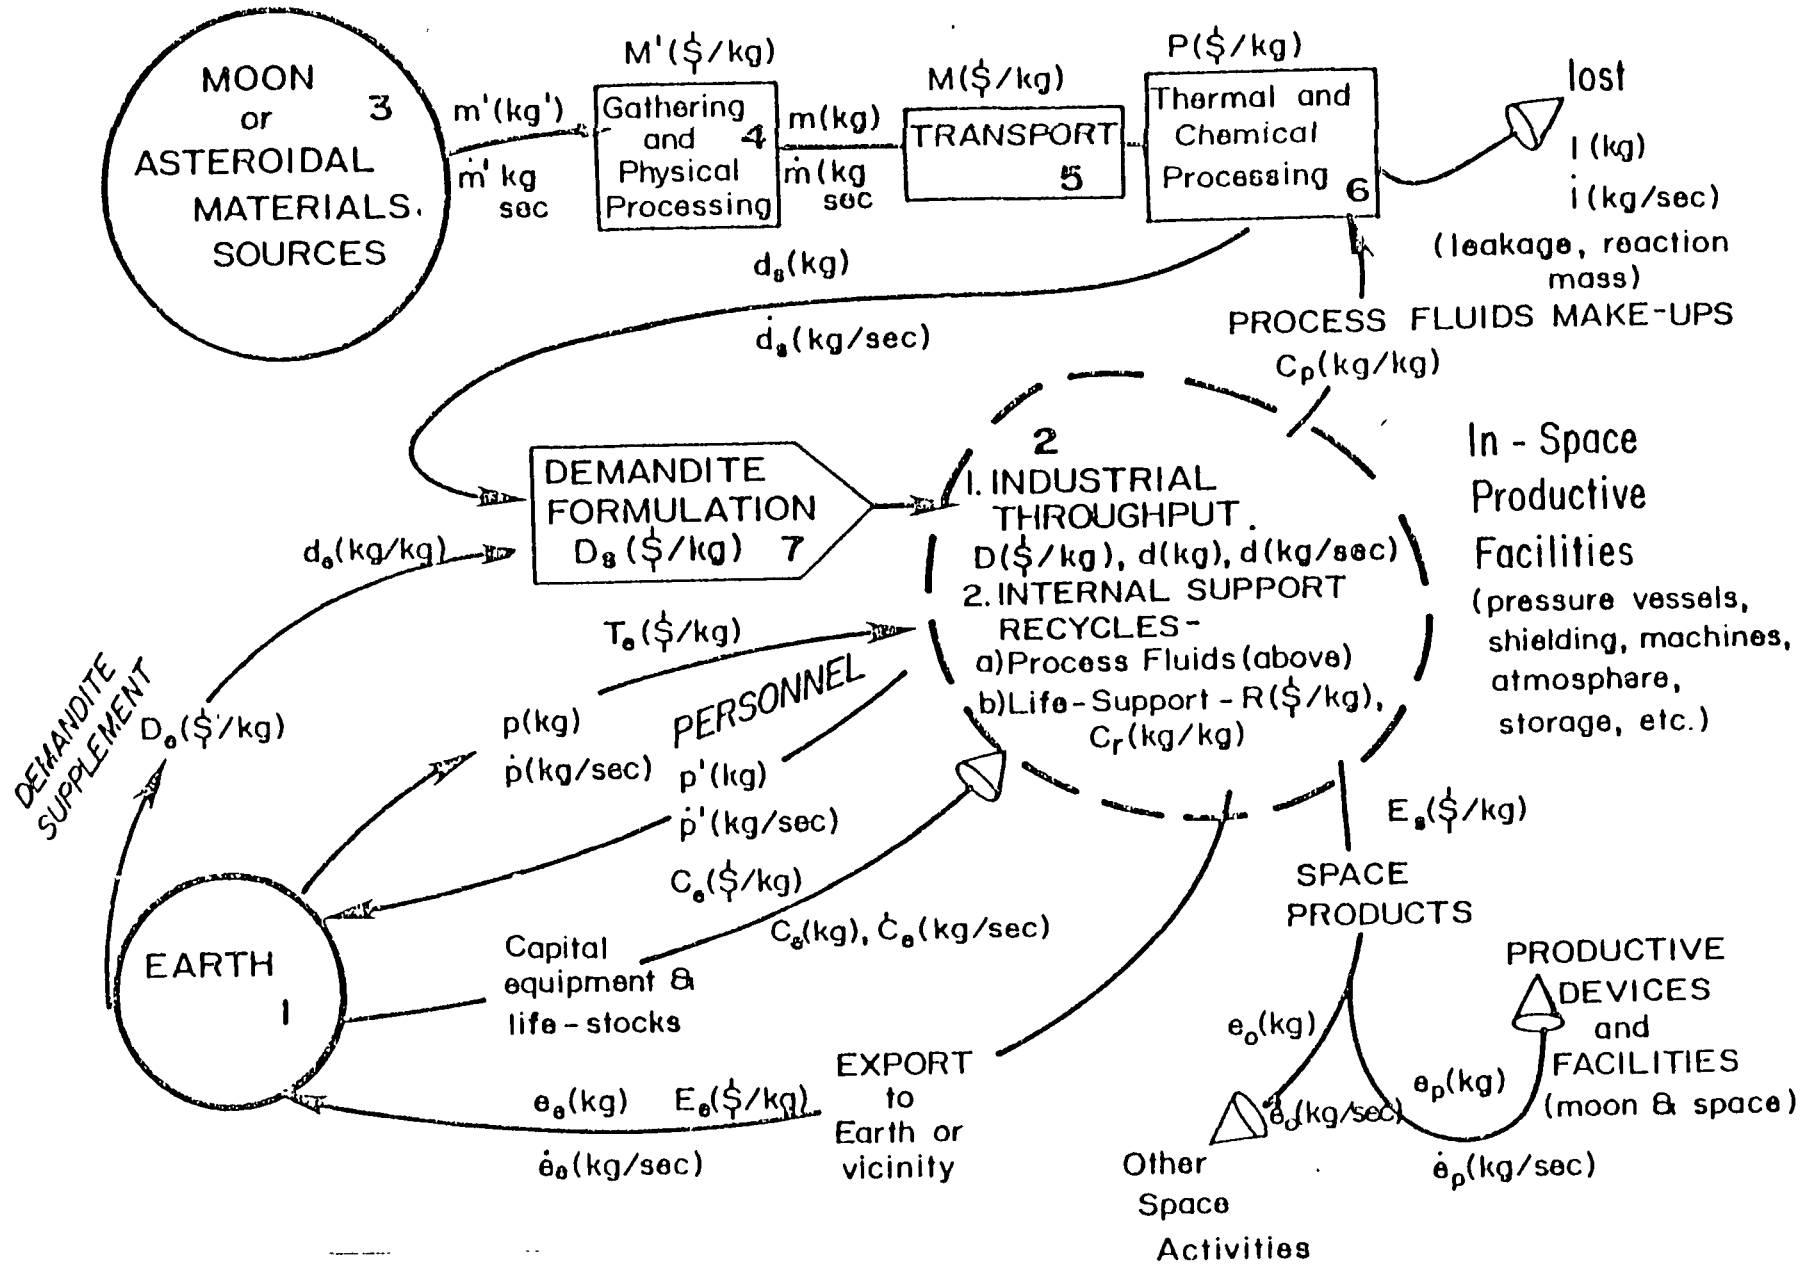 MOON
or
ASTEROIDAL
MATERIALS.
SOURCES
3
m'(kg')
ṁ' kg
sec
M'($/kg)
Gathering
and
Physical
Processing
4
m(kg)
ṁ(kg
sec
M($/kg)
TRANSPORT
5
P($/kg)
Thermal and
Chemical
Processing
6
lost
l (kg)
i (kg/sec)
(leakage, reaction
mass)
PROCESS FLUIDS MAKE-UPS
Cp(kg/kg)
ds(kg)
ḋs(kg/sec)
DEMANDITE
FORMULATION
Ds($/kg) 7
de(kg/kg)
DEMANDITE
SUPPLEMENT
De($/kg)
2
1. INDUSTRIAL
THROUGHPUT.
D($/kg), d(kg), d(kg/sec)
2. INTERNAL SUPPORT
RECYCLES-
a)Process Fluids (above)
b)Life-Support - R($/kg),
Cr(kg/kg)
In - Space
Productive
Facilities
(pressure vessels,
shielding, machines,
atmosphare,
storage, etc.)
Te($/kg)
PERSONNEL
p(kg)
ṗ(kg/sec)
p'(kg)
ṗ'(kg/sec)
Ce($/kg)
Ce(kg), Ċe(kg/sec)
Capital
equipment &
life-stocks
EARTH
1
ee(kg) Ee($/kg)
ėe(kg/sec)
EXPORT
to
Earth or
vicinity
Es($/kg)
SPACE
PRODUCTS
eo(kg)
ėo(kg/sec)
Other
Space
Activities
ep(kg)
ėp(kg/sec)
PRODUCTIVE
DEVICES
and
FACILITIES
(moon & space)